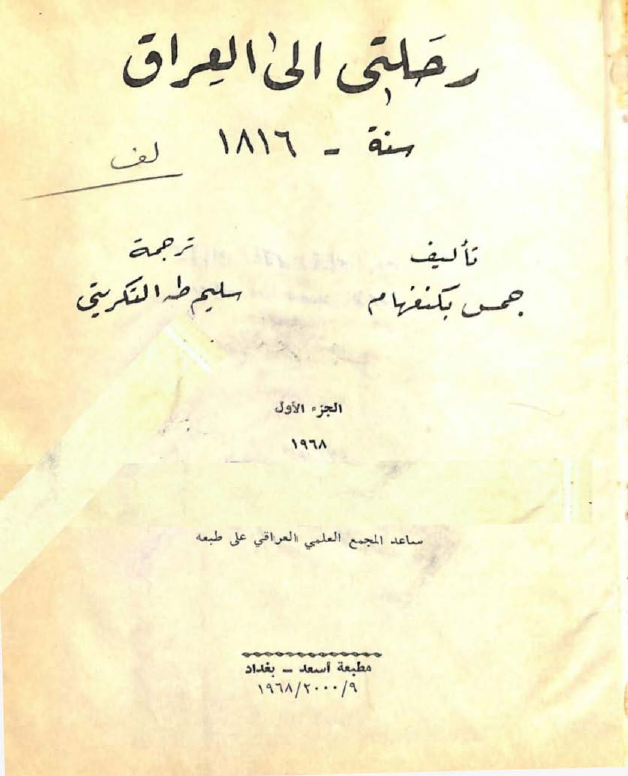 رحلتي الى العراق
سنة - ١٨١٦
لف
تأليف
ترجمة
جمس بكنغهام
سليم طه التكريتي
الجزء الأول
١٩٦٨
ساعد المجمع العلمي العراقي على طبعه
مطبعة أسعد - بغداد
١٩٦٨/٢٠٠٠/٩